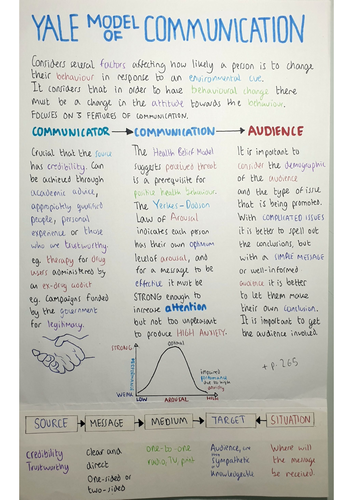 YALE MODEL OF COMMUNICATION
Considers several factors affecting how likely a person is to change
their behaviour in response to an environmental cue.
It considers that in order to have behavioural change there
must be a change in the attitude towards the behaviour.
FOCUSES ON 3 FEATURES OF COMMUNICATION.
COMMUNICATOR → COMMUNICATION → AUDIENCE
Crucial that the source
has credibility. Can
be achieved through
academic advice,
appropriately qualified
people, personal
experience or those
who are trustworthy.
eg. therapy for drug
users administered by
an ex-drug addict
eg. Campaigns funded
by the government
for legitimacy.
The Health Belief Model
suggests perceived threat
is a prerequisite for
positive health behaviour.
The Yerkes-Dodson
Law of Arousal
indicates each person
has their own optimum
level of arousal, and
for a message to be
effective it must be
STRONG enough to
increase attention
but not too unpleasant
to produce HIGH ANXIETY.
It is important to
consider the demographic
of the audience
and the type of issue
that is being promoted.
With COMPLICATED ISSUES
it is better to spell out
the conclusions, but
with a SIMPLE MESSAGE
or well-informed
audience it is better
to let them make
their own conclusion.
It is important to get
the audience involved.
STRONG
optimal
impaired
performance
due to high
anxiety
WEAK
LOW AROUSAL HIGH
+ p. 265
SOURCE → MESSAGE → MEDIUM → TARGET ← SITUATION
Credibility
Trustworthy
clear and
direct
One-sided or
two-sided
one-to-one
radio, TV, post
Audience,
sympathetic
knowledgeable
Where will
the message
be received